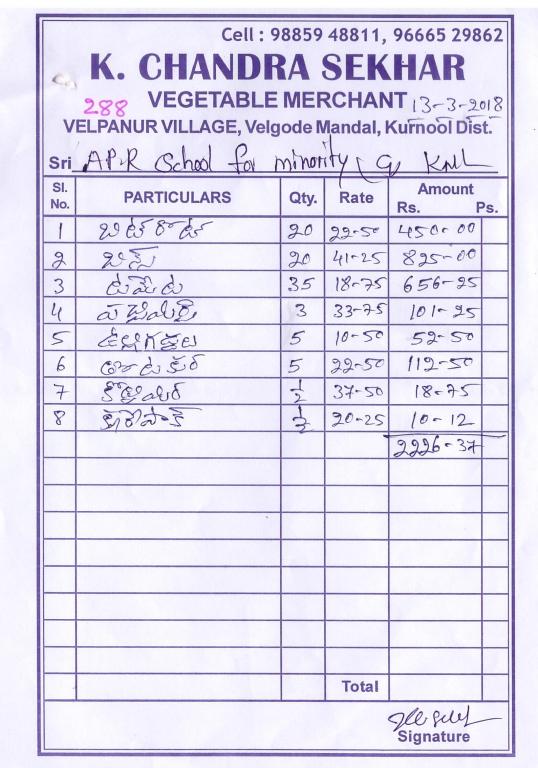 Cell : 98859 48811, 96665 29862
K. CHANDRA SEKHAR
288 VEGETABLE MERCHANT 13-3-2018
VELPANUR VILLAGE, Velgode Mandal, Kurnool Dist.
Sri A.P.R School for minority (G) KNL
Sl. No. PARTICULARS Qty. Rate Amount Rs. Ps.
1 బీట్ రూట్ 20 22-50 450-00
2 బీన్స్ 20 41-25 825-00
3 టమేట 35 18-75 656-25
4 పచ్చిమిర్చి 3 33-75 101-25
5 ఉల్లిగడ్డలు 5 10-50 52-50
6 5 22-50 112-50
7 కొత్తిమీర 1/2 37-50 18-75
8 కరేపాక్ 1/2 20-25 10-12
2226-37
Total
Signature